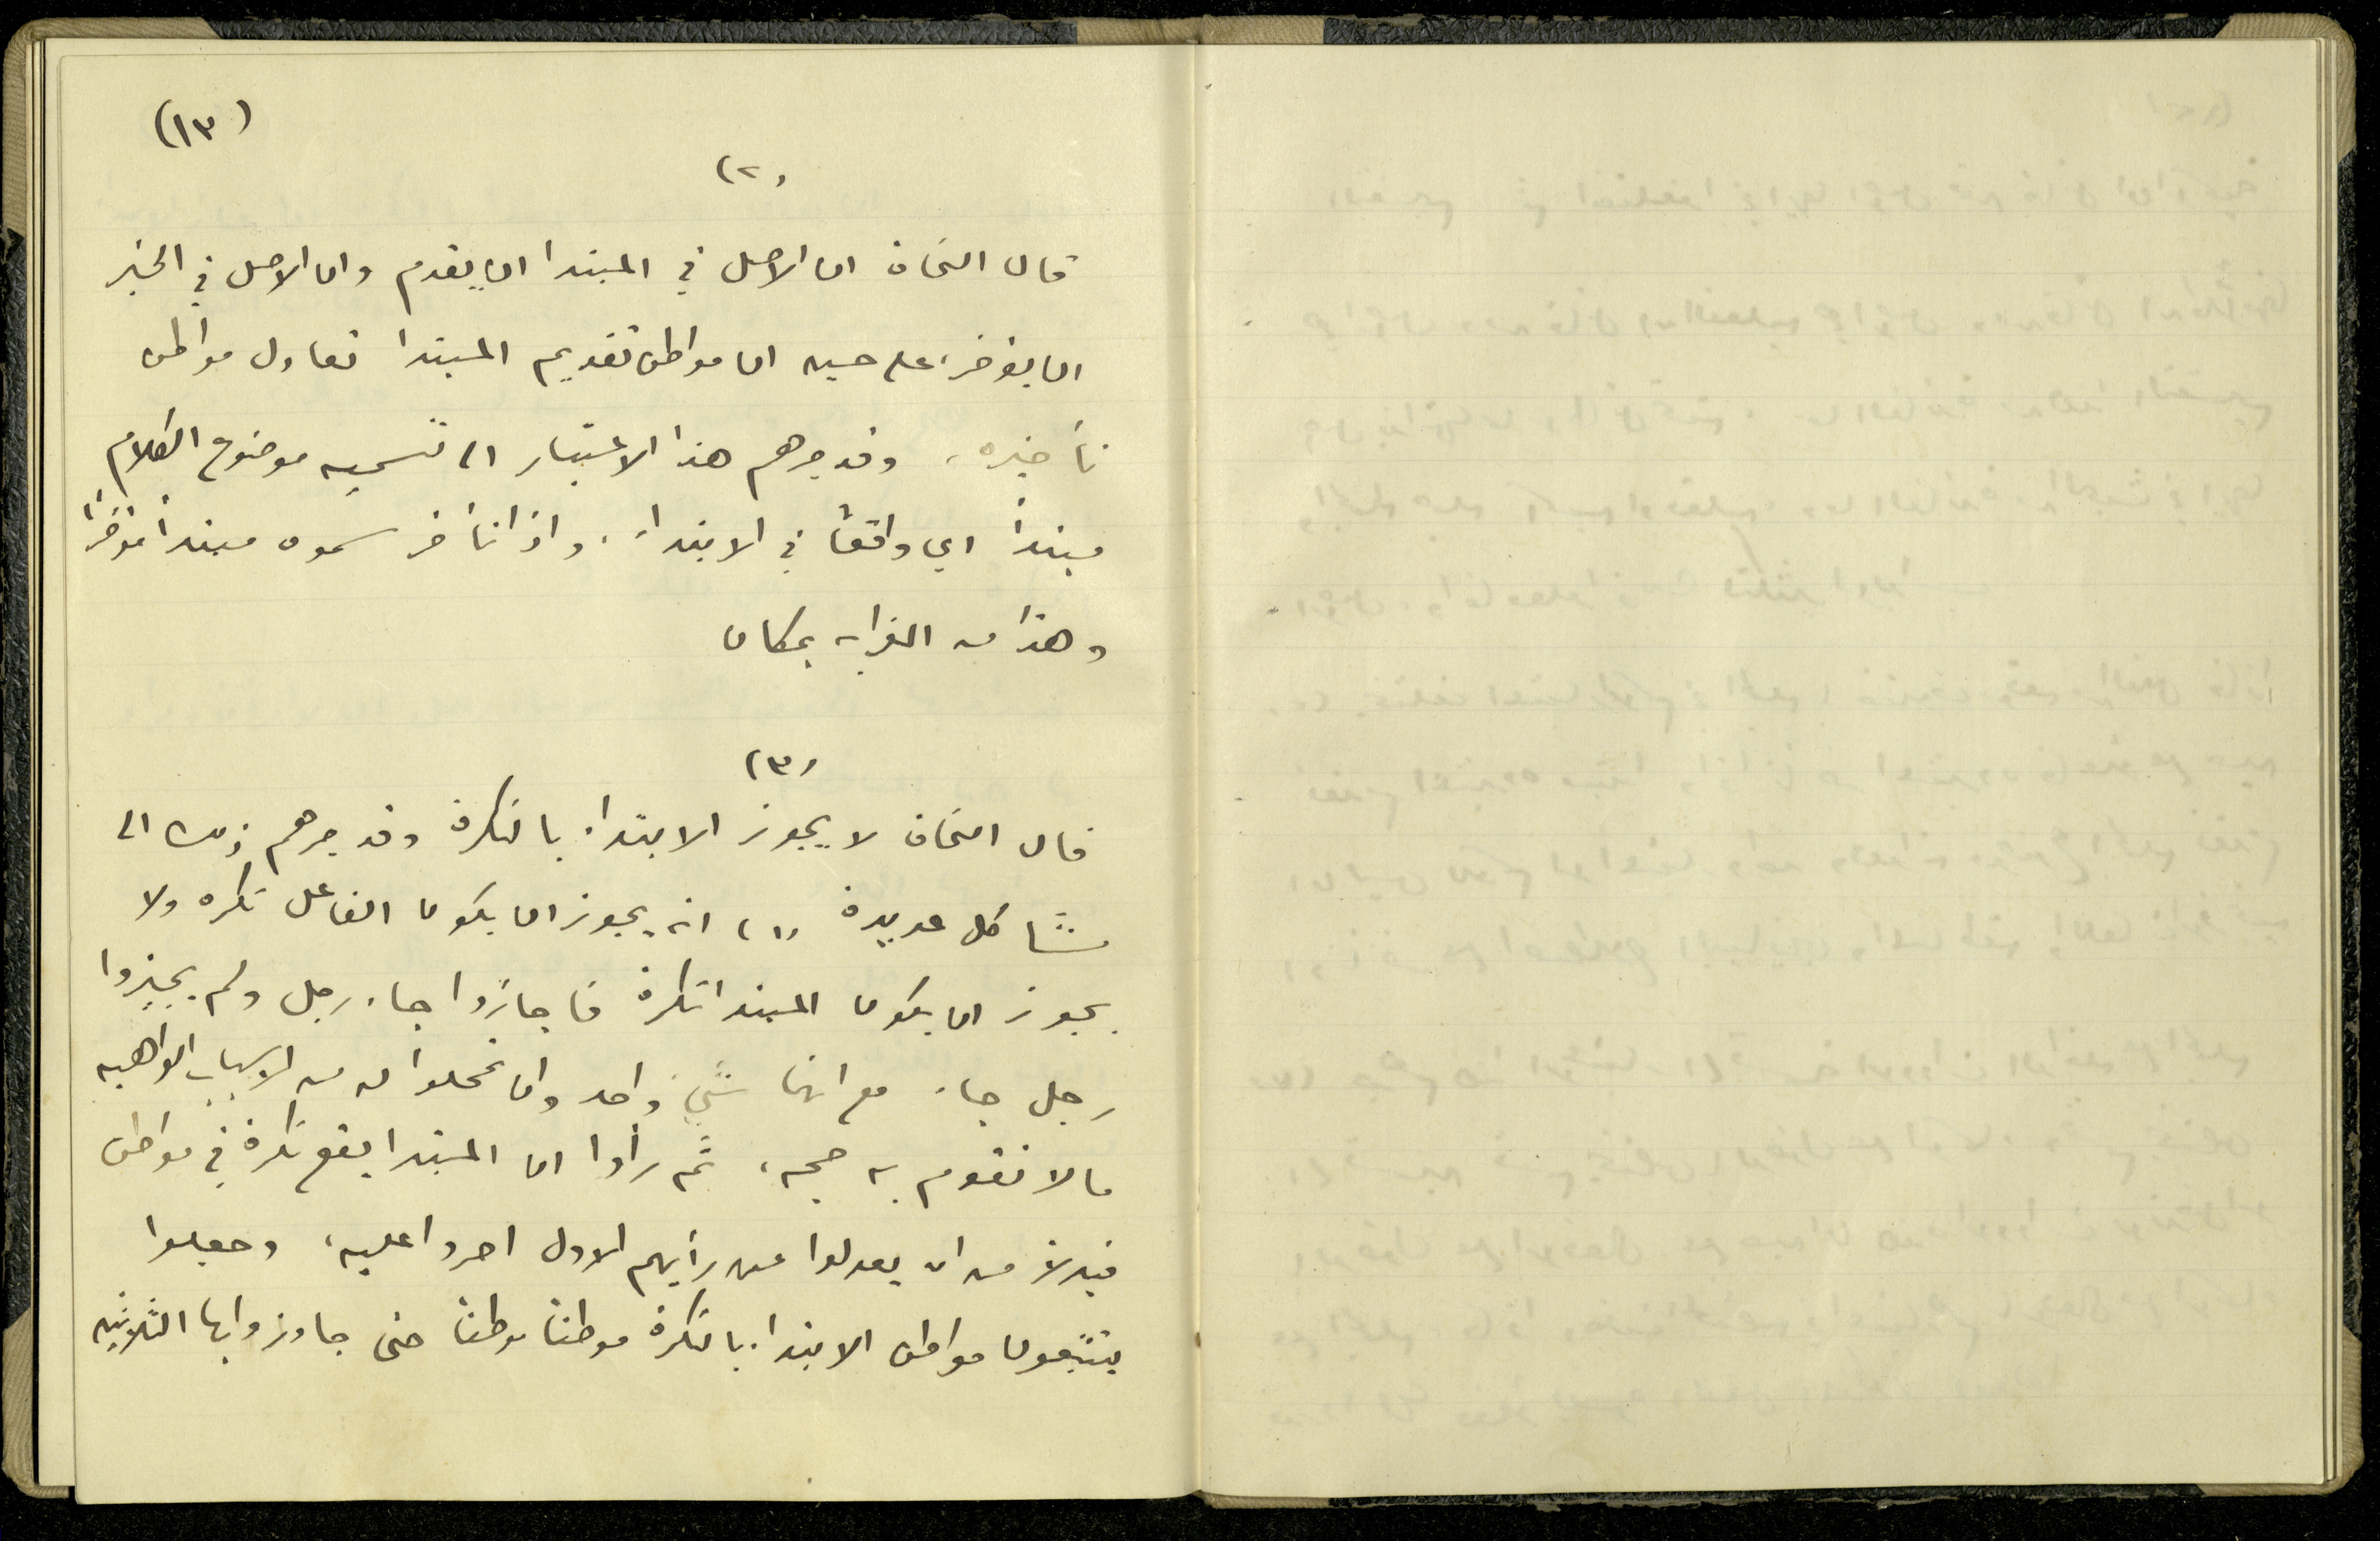 (١٣)
(٢)
قال النحاة ان الاصل في المبتدا ان يتقدم وان الاصل في الخبر
ان يؤخر، على حين ان مواطن تقديم المبتدا تعادل مواطن
تأخيره، وقد جرهم هذا الاعتبار الى تسميه موضوع الكلام
مبتدأ اي واقعا في الابتداء، واذا تأخر سموه مبتدأ مؤخرا
وهذا من الغرابه بمكان
(٣)
قال النحاة لا يجوز الابتداء بالنكرة وقد جرهم ذلك الى
مشاكل عديدة (١) انه يجوز ان يكون الفاعل نكره ولا
يجوز ان يكون المبتدا نكرة فاجازوا جاء رجل ولم يجيزوا
رجل جاء مع انهما شيئ واحد وان تمحلوا له من الاسباب الواهيه
مالا تقوم به حجه، ثم رأوا ان المبتدا يقع نكرة في مواطن
فبدلا من ان يعدلوا عن رأيهم الاول اصروا عليه، وجعلوا
يتتبعون مواطن الابتداء بالنكرة موطنا موطنا حتى جاوزوا بها الثلاثين